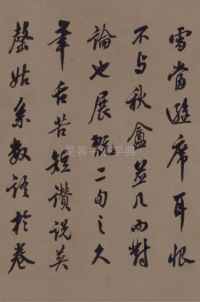 雪當避席耳恨
不与秋盦並几而對
論也展玩二旬之久
筆舌苦短讚說莫
罄姑系數語於卷